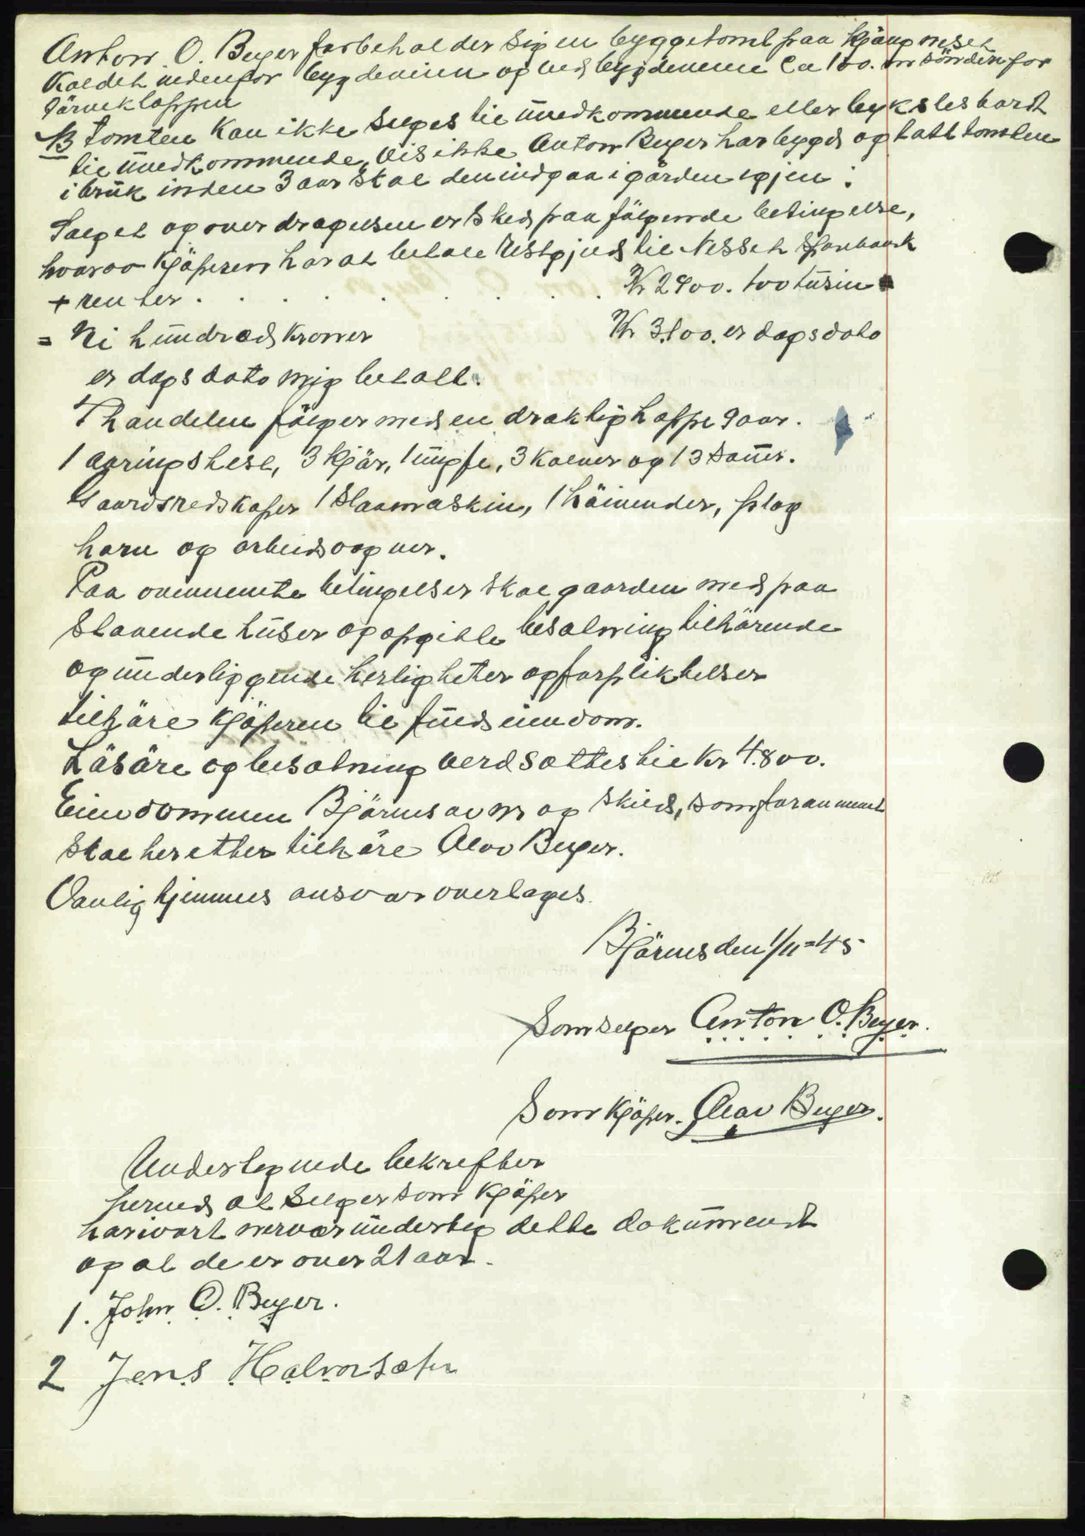 Anton O. Beyer forbeholder sig en byggetomt paa
Kaldet nedenfor bygdeveien og ved bygdeveiene Ca 100. m söndenfor

NB Tomten Kan ikke selges til uvedkommende eller bykslesbordt
til uvedkommende. Vis ikke Anton Beyer har bygd og tatt tomten
i bruk inden 3 aar skal den indgaa i gården igjen.
Salget og overdragelsen er sked paa fölgende betingelse,
hvorav Kjöperen har at betale Restgjeld til Nesset Sparbank
+ renter . . . . . . . . Kr 2900. too tusin
= Ni hundred Kroner Kr 3100. er dagsdato
er dags dato mig betalt.
I handelen fölger med en draktig hoppe 9 aar.
1 aaringshest, 3 Kjör, 1 ungfe, 3 Kalver og 13 Sauer.
Gaardsredskaper 1 Slaamaskin, 1 höivender, plog
harv og arbeidsvogner.
Paa ovennemte betingelser skal gaarden med paa
staaende huser og opgitte besetning tilhörende
og underliggende herligheter og forpliktelser
tilhöre Kjöperen til fuld eiendom.
Lösöre og besetning verdsattes til Kr 4800.
Eiendommen Björnsavm og Skied, som forannevnt
skal herefter tilhöre Olav Beyer.
Vanlig hjemmels ansvar overtages.
Björnes den 1/11-45
Som selger Anton O. Beyer.
Som Kjöper. Olav Beyer.
Undertegnede bekrefter
herved at Selger som Kjöper
har vort nervær underteg dette dokument
og at de er over 21 aar.
1. John O. Beyer.
2 Jens Halvorsen